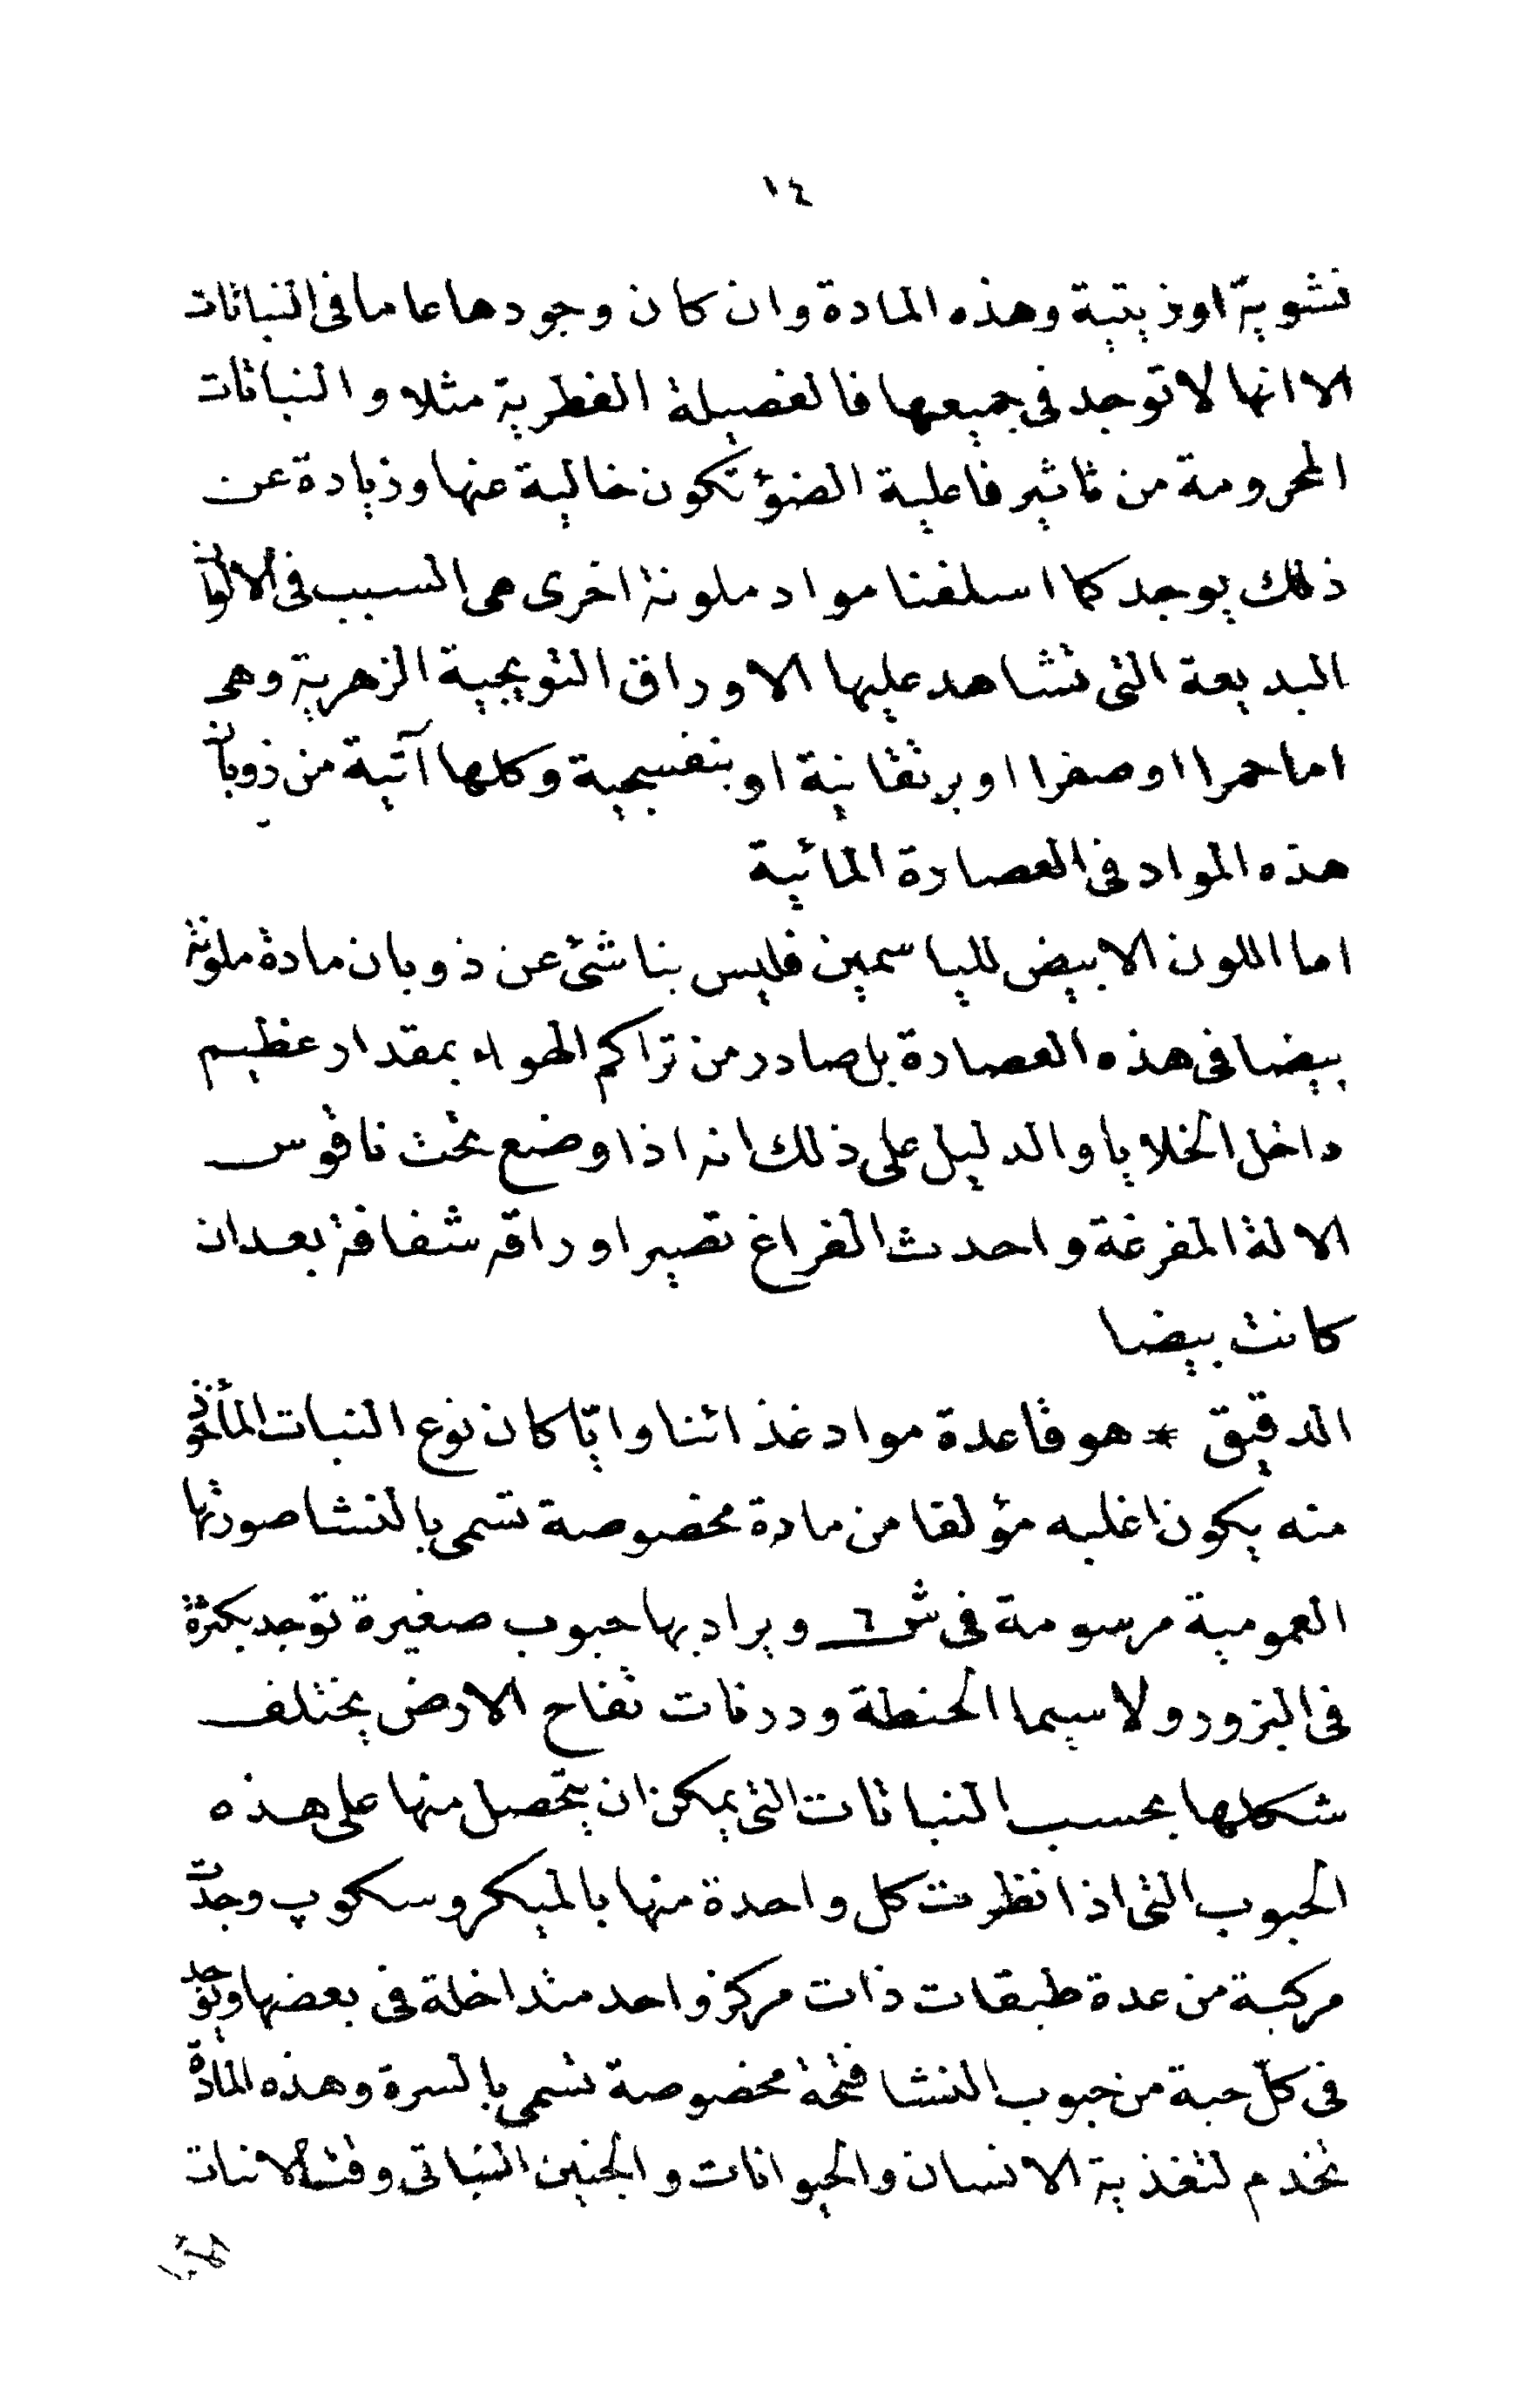 ١٤
نشوية اوزيتية وهذه المادة وان كان وجودها عاما فى النباتات
الا انها لا توجد فى جميعها فالفصيلة الفطرية مثلا والنباتات
المحرومة من تاثير فاعلية الضؤ تكون خالية عنها وزيادة عن
ذلك يوجد كما اسلفنا مواد ملونة اخرى هى السبب فى الالوان
البديعة التى تشاهد عليها الاوراق التويجية الزهرية وهى
اما حمرا او صفرا او برتقانية او بنفسجية وكلها آتية من ذوبان
هذه المواد فى العصارة المائية
اما اللون الابيض للياسمين فليس بناشئ عن ذوبان مادة ملونة
بيضا فى هذه العصارة بل صادر من تراكم الهواء بمقدار عظيم
داخل الخلايا والدليل على ذلك انه اذا وضع تحت ناقوس
الالة المفرغة واحدث الفراغ تصير اوراقه شفافة بعد ان
كانت بيضا
الدقيق * هو قاعدة مواد غذائنا وايّا كان نوع النبات المأخوذ
منه يكون اغلبه مؤلفا من مادة مخصوصة تسمى بالنشا صورتها
العمومية مرسومة فى ش ٦ ويراد بها حبوب صغيرة توجد بكثرة
فى البزور ولا سيما الحنطة ودرنات تفاح الارض يختلف
شكلها بحسب النباتات التى يمكن ان يتحصل منها على هذه
الحبوب التى اذا نظرت كل واحدة منها بالميكروسكوپ وجدت
مركبة من عدة طبقات ذات مركز واحد متداخلة فى بعضها ويوجد
فى كل حبة من حبوب النشا فتحة مخصوصة تسمى بالسرة وهذه المادة
تخدم لتغذية الانسان والحيوانات والجنين النباتى وقت الانبات